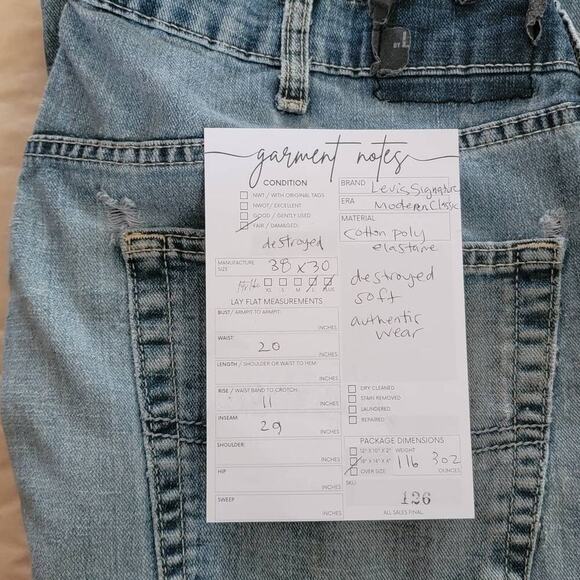 BY L
garment notes
CONDITION
NWT / WITH ORIGINAL TAGS
NWOT/ EXCELLENT
GOOD / GENTLY USED
FAIR / DAMAGED:
destroyed
MANUFACTURE SIZE: 38 x 30
XS S M L PLUS
LAY FLAT MEASUREMENTS
BUST/ ARMPIT TO ARMPIT:
INCHES
WAIST:
20
INCHES
LENGTH / SHOULDER OR WAIST TO HEM:
INCHES
RISE / WAIST BAND TO CROTCH:
11
INCHES
INSEAM:
29
INCHES
SHOULDER:
INCHES
HIP
INCHES
SWEEP
INCHES
BRAND Levi's Signature
ERA Moderen Classic
MATERIAL
Cotton poly
elastane
destroyed
soft
authentic
wear
DRY CLEANED
STAIN REMOVED
LAUNDERED
REPAIRED
PACKAGE DIMENSIONS
12" X 10" X 2" WEIGHT
18" X 14" X 4" 1 lb 3 oz
OVER SIZE OUNCES
SKU:
126
ALL SALES FINAL